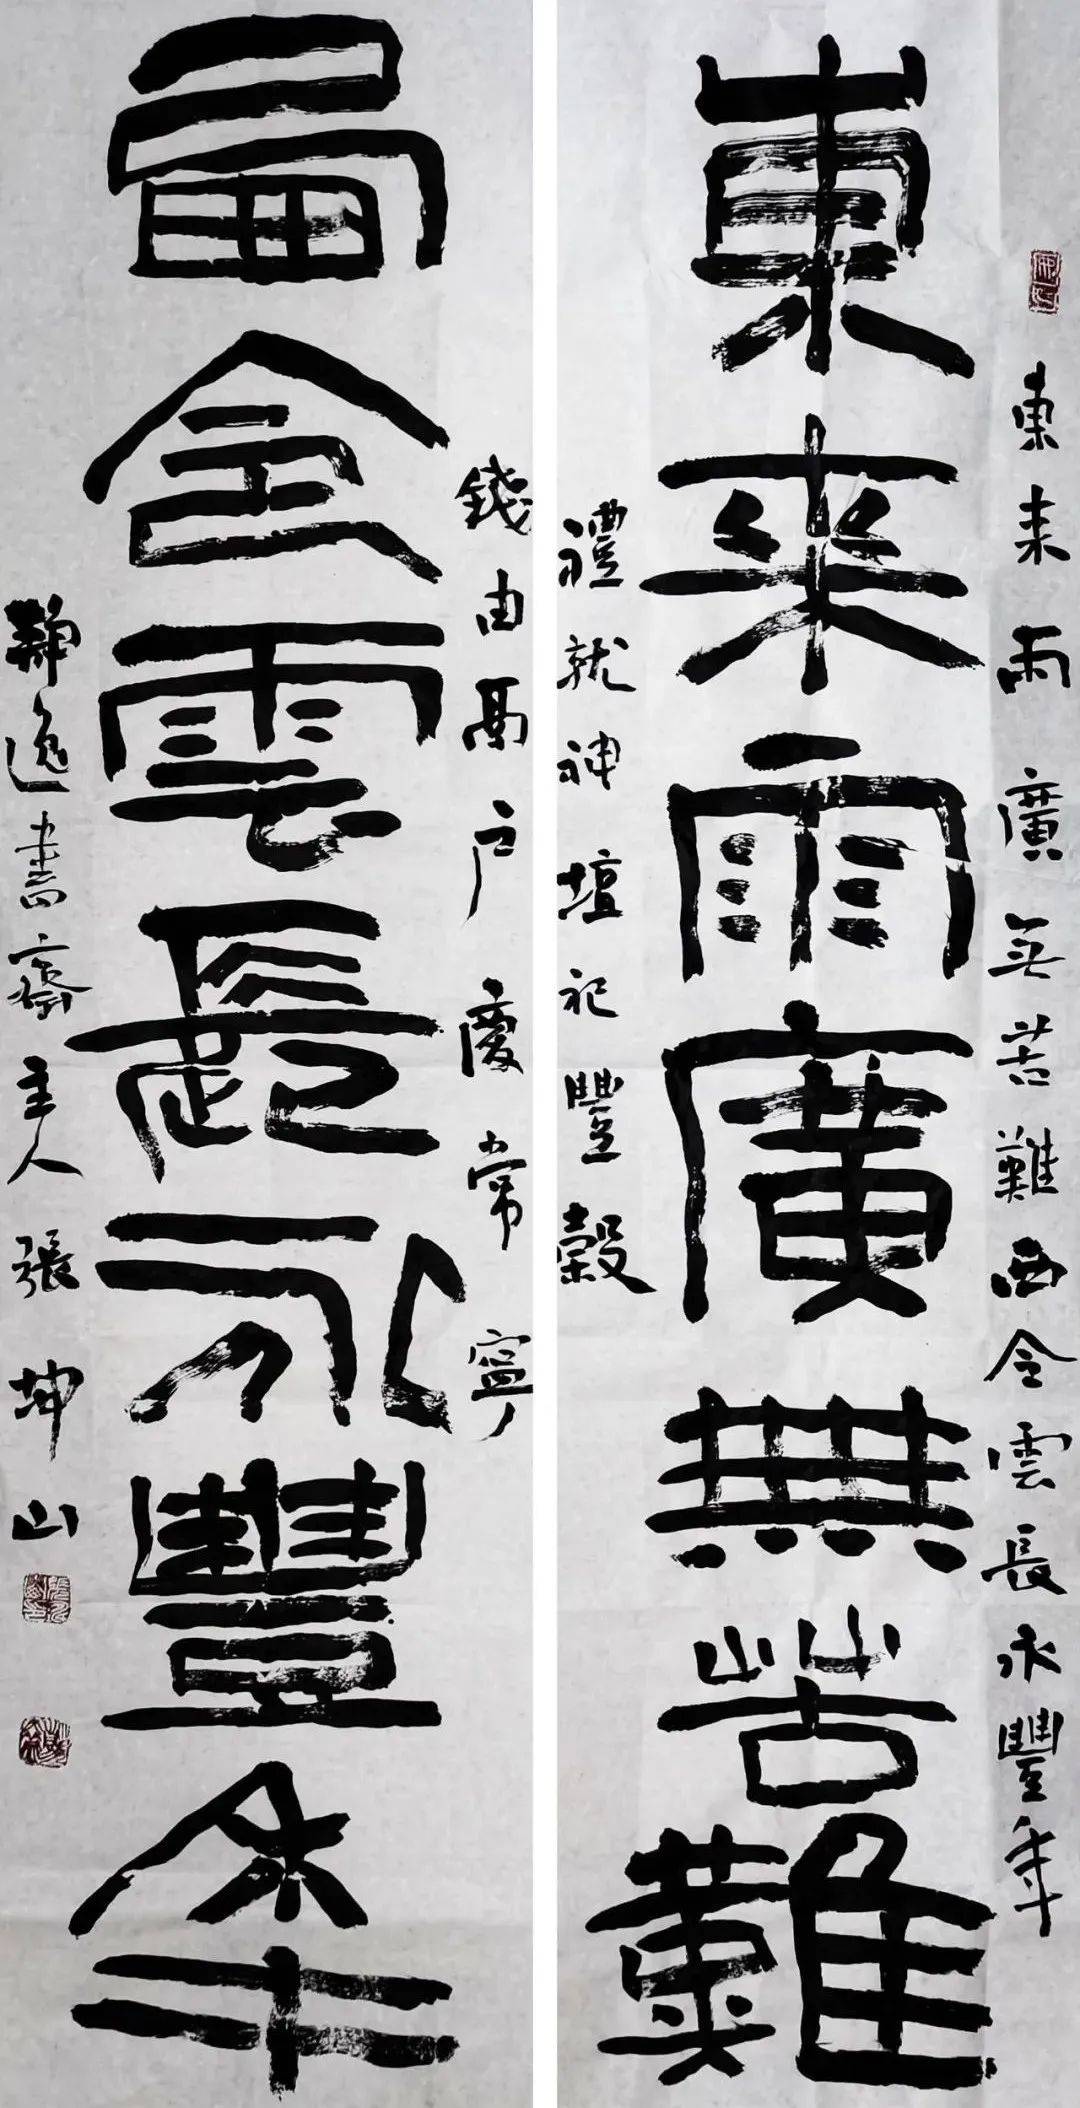 東來雨廣無苦難
西令雲長永豐年
東来雨廣無苦難西令雲長永豐年
禮就神壇祀豐穀
錢由鬲户慶常寧
靜逸書齋主人張坤山